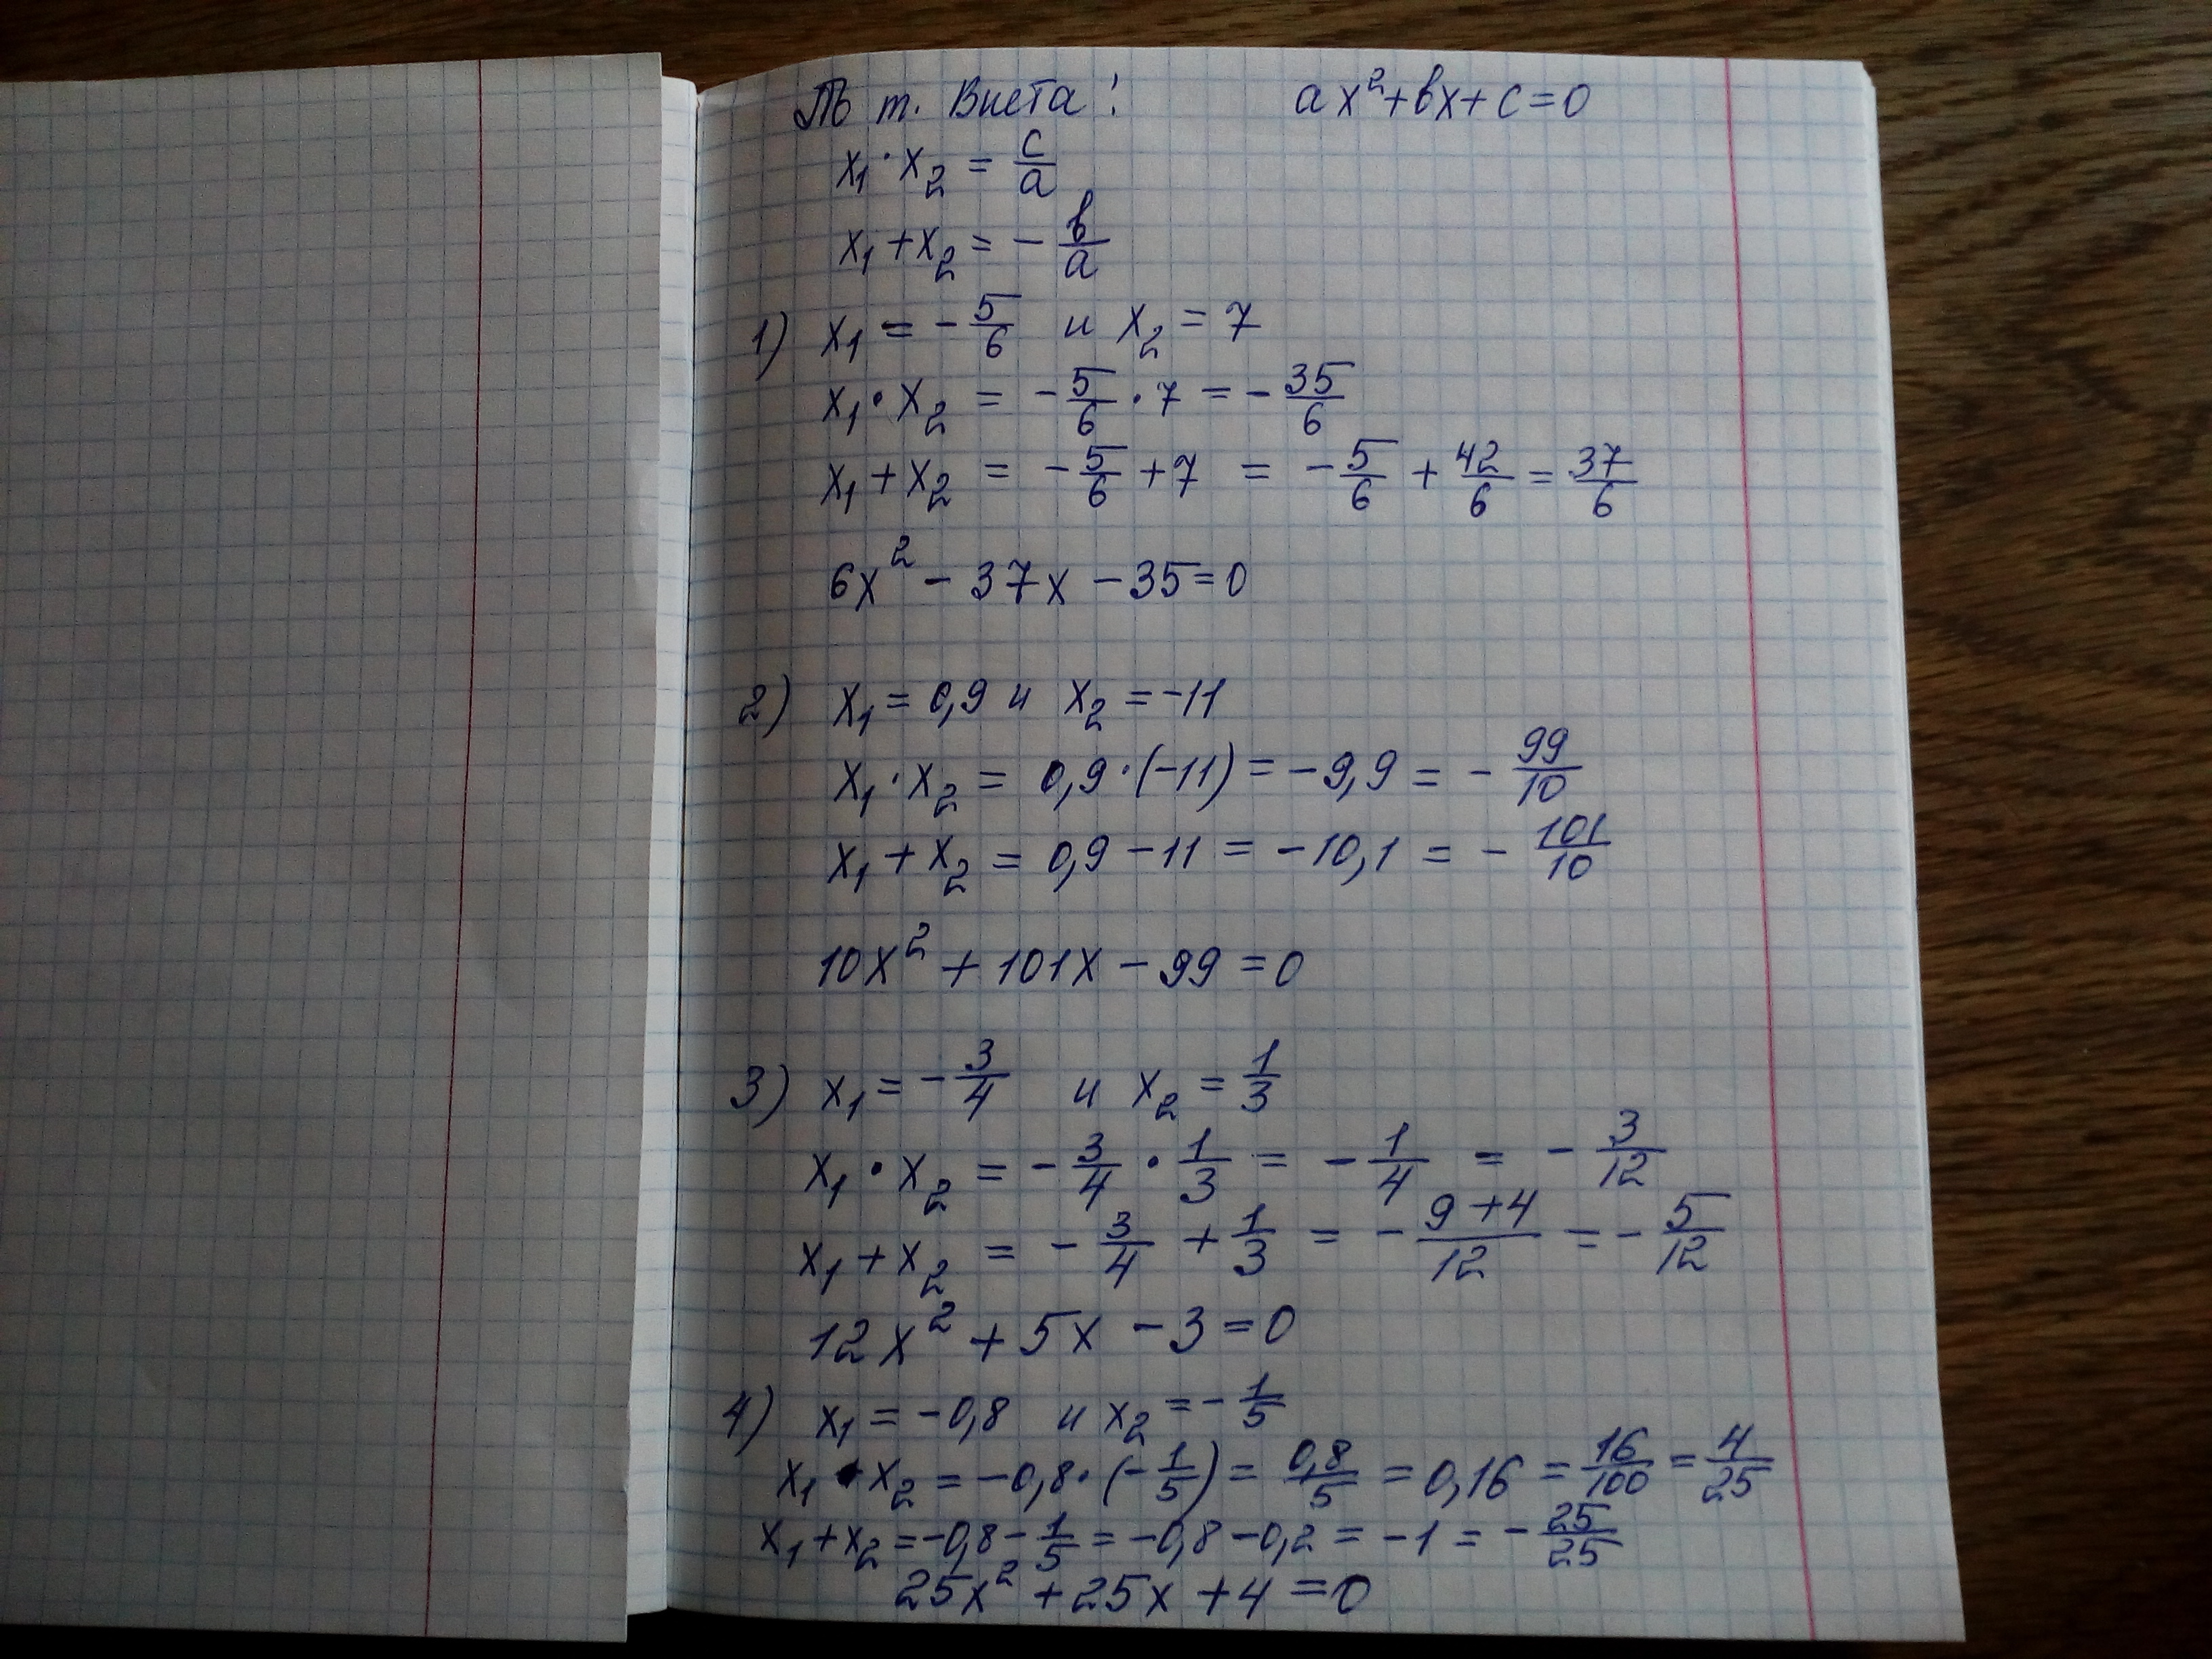 По т. Виета: ax² + bx + c = 0
x₁ · x₂ = c/a
x₁ + x₂ = - b/a
1) x₁ = - 5/6 и x₂ = 7
x₁ · x₂ = - 5/6 · 7 = - 35/6
x₁ + x₂ = - 5/6 + 7 = - 5/6 + 42/6 = 37/6
6x² - 37x - 35 = 0
2) x₁ = 0,9 и x₂ = -11
x₁ · x₂ = 0,9 · (-11) = -9,9 = - 99/10
x₁ + x₂ = 0,9 - 11 = -10,1 = - 101/10
10x² + 101x - 99 = 0
3) x₁ = - 3/4 и x₂ = 1/3
x₁ · x₂ = - 3/4 · 1/3 = - 1/4 = - 3/12
x₁ + x₂ = - 3/4 + 1/3 = - (9+4)/12 = - 5/12
12x² + 5x - 3 = 0
4) x₁ = -0,8 и x₂ = - 1/5
x₁ · x₂ = -0,8 · (- 1/5) = 0,8/5 = 0,16 = 16/100 = 4/25
x₁ + x₂ = -0,8 - 1/5 = -0,8 - 0,2 = -1 = - 25/25
25x² + 25x + 4 = 0